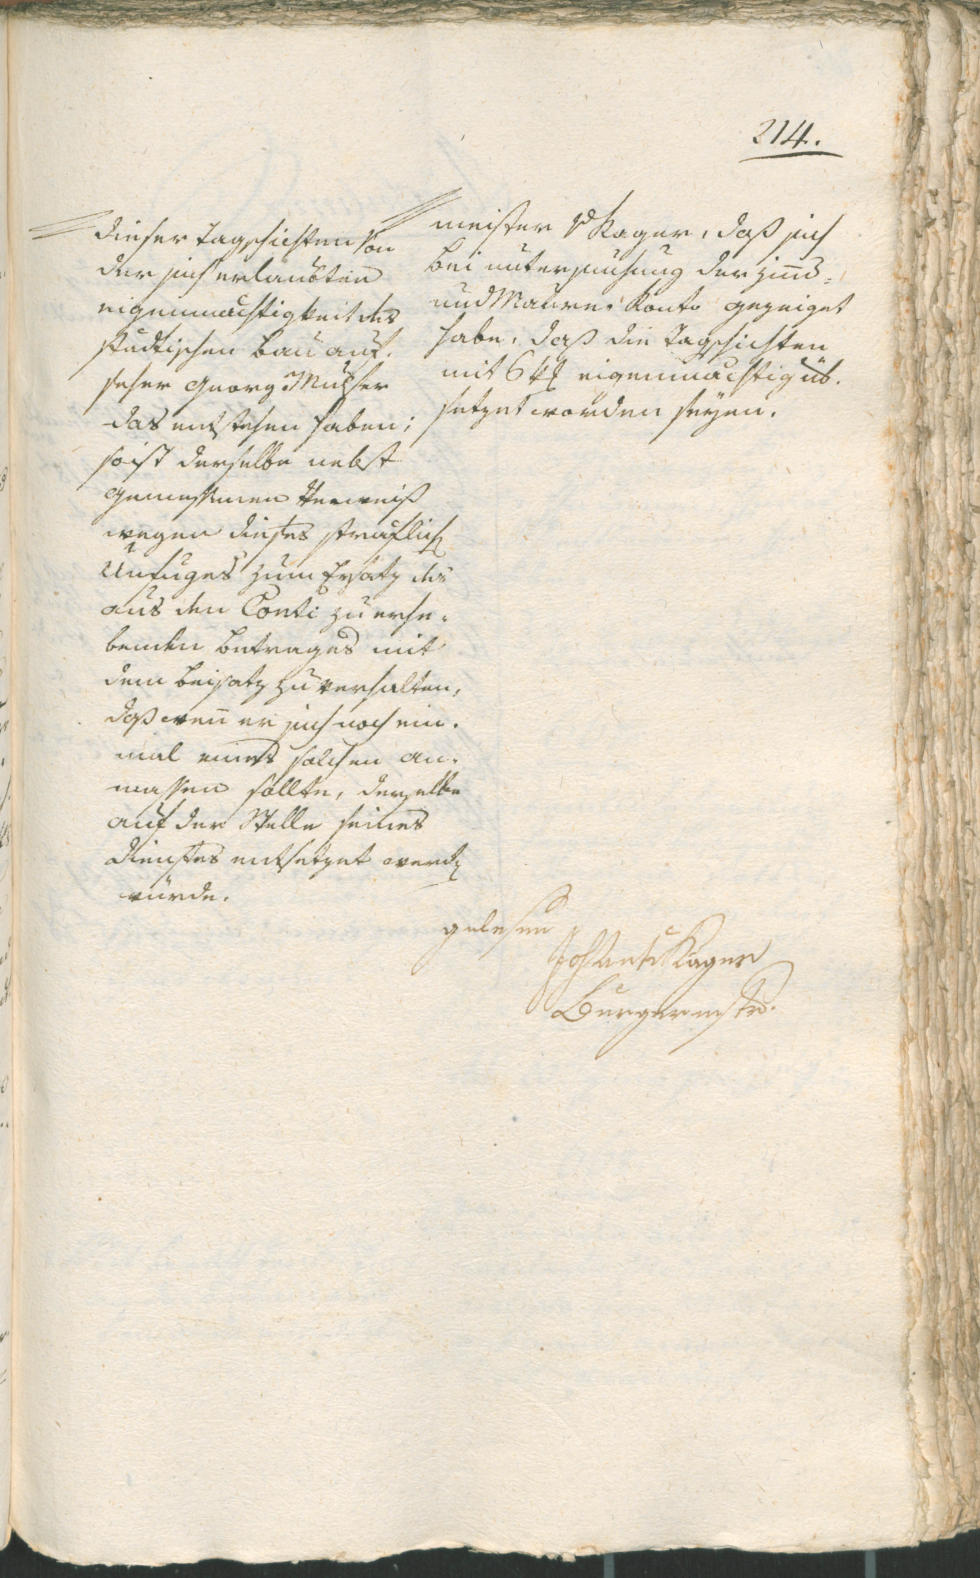 214.
dieser Tagschichten von
der sich erlaubten
eigenmächtigkeit des
städtischen Bau auf-
seher Georg
das entstehen haben;
so ist derselbe nebst
gemessenen Verweiß
wegen dieses sträflich
Unfuges zum Ersatz des
aus den Conti zu erhe-
benden Betrages mit
dem Beisatz zu verhalten,
daß wen̄ er sich noch ein-
mal eines solchen an-
massen sollte, derselbe
auf der Stelle seines
Dienstes entsetzet werd
würde.
meister Kager, daß sich
bei untersuchung der
und Maurer Konto gezeiget
habe, daß die Tagschichten
mit 6 eigenmächtig üb-
setzet worden seyen.
gelesen
Joh Ant Kager
Burgermstr.